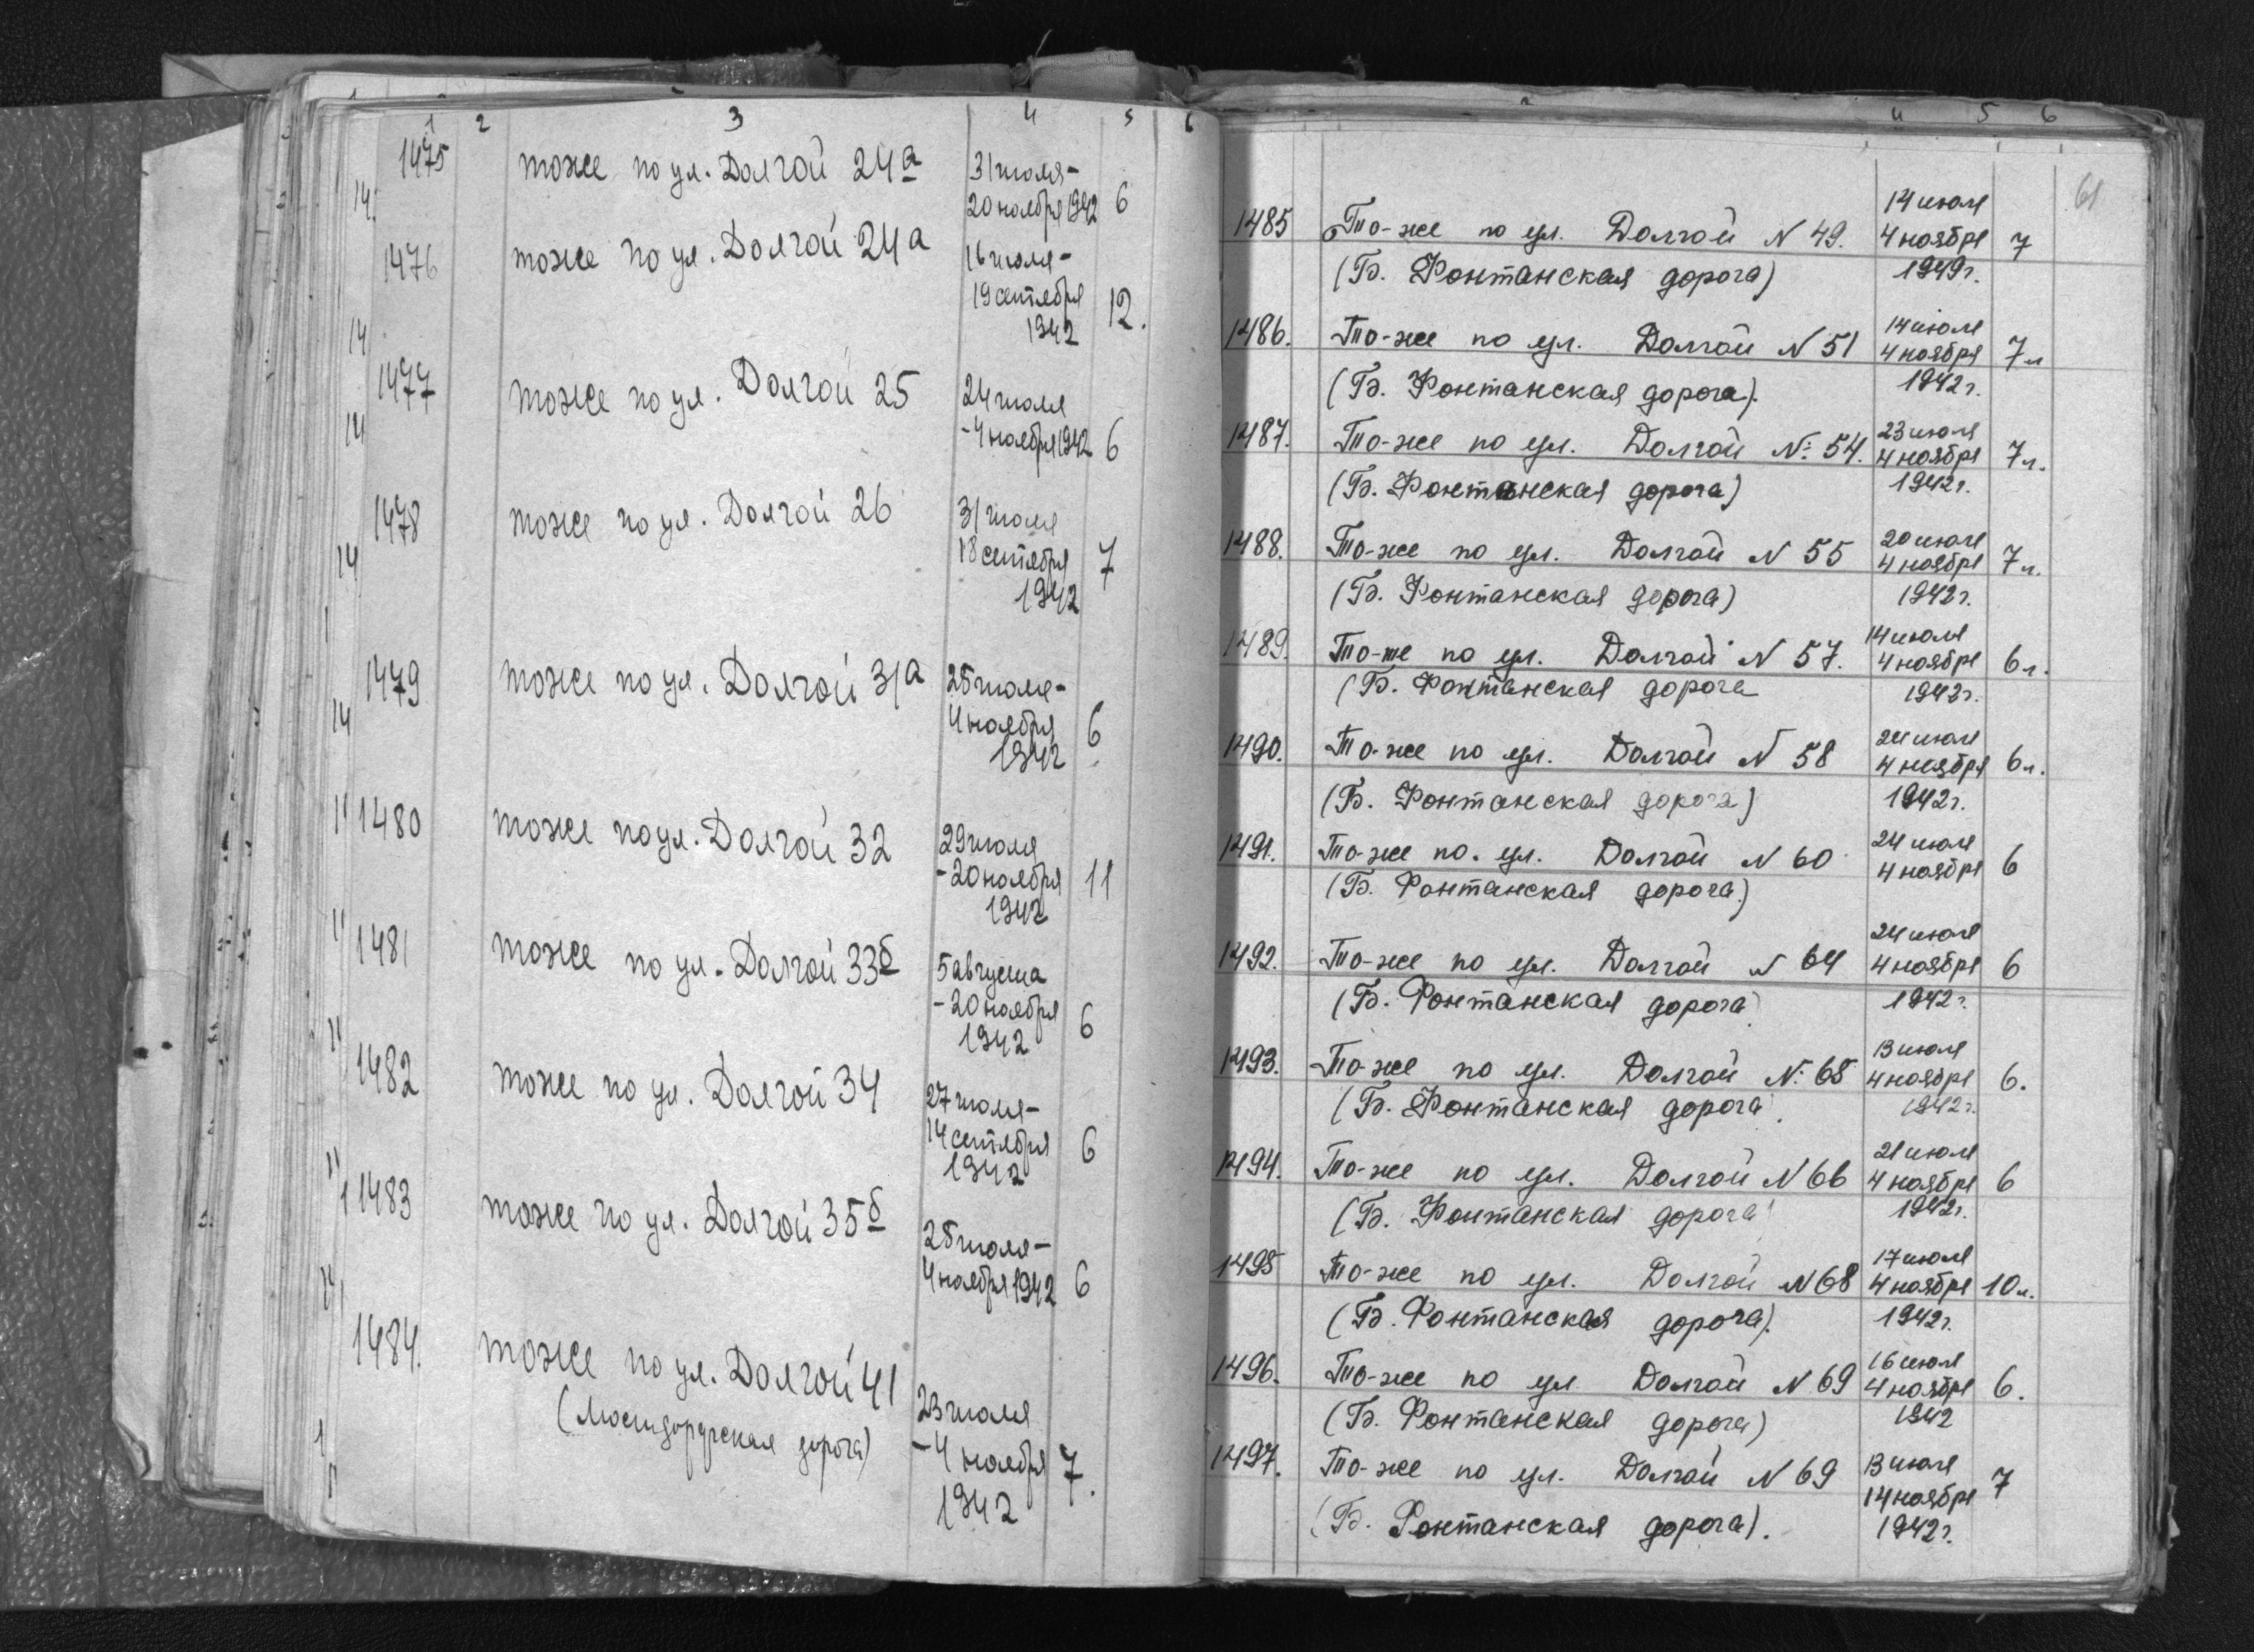 1 2 3 4 5 6
1475 тоже по ул. Долгой 24а 31 июля-
20 ноября 1942 6
1476 тоже по ул. Долгой 24а 16 июля-
19 сентября 12.
1942
1477 тоже по ул. Долгой 25 24 июля
-4 ноября 1942 6
1478 тоже по ул. Долгой 26 31 июля
18 сентября 7
1942
1479 тоже по ул. Долгой 31а 28 июля-
4 ноября 6
1942
1480 тоже по ул. Долгой 32 29 июля
-20 ноября 11
1942
1481 тоже по ул. Долгой 33б 5 августа
-20 ноября 6
1942
1482 тоже по ул. Долгой 34 27 июля-
14 сентября 6
1942
1483 тоже по ул. Долгой 35б 28 июля-
4 ноября 1942 6
1484. тоже по ул. Долгой 41 23 июля
дорога) -4 ноября 7.
1942
4 5 6
61
14 июля
1485 То-же по ул. Долгой N 49. 4 ноября 7
(Б. Фонтанская дорога) 1949г.
14 июля
1486. То-же по ул. Долгой N 51 4 ноября 7л
(Б. Фонтанская дорога). 1942г.
23 июля
1487. То-же по ул. Долгой N: 54. 4 ноября 7л.
(Б. Фонтанская дорога) 1942г.
20 июля
1488. То-же по ул. Долгой N 55 4 ноября 7л.
(Б. Фонтанская дорога) 1942г.
14 июля
1489. То-же по ул. Долгой N 57. 4 ноября 6л.
(Б. Фонтанская дорога 1942г.
24 июля
1490. То-же по ул. Долгой N 58 4 ноября 6л.
(Б. Фонтанская дорога) 1942г.
24 июля
1491. То-же по. ул. Долгой N 60 4 ноября 6
(Б. Фонтанская дорога.)
24 июля
1492. То-же по ул. Долгой N 64 4 ноября 6
(Б. Фонтанская дорога) 1942г.
13 июля
1493. То-же по ул. Долгой N: 65 4 ноября 6.
(Б. Фонтанская дорога). 1942г.
21 июля
1494. То-же по ул. Долгой N 66 4 ноября 6
(Б. Фонтанская дорога) 1942г.
17 июля
1495 То-же по ул. Долгой N 68 4 ноября 10л.
(Б. Фонтанская дорога). 1942г.
16 июля
1496. То-же по ул Долгой N 69 4 ноября 6.
(Б. Фонтанская дорога) 1942
13 июля
1497. То-же по ул. Долгой N 69 14 ноября 7
(Б. Фонтанская дорога). 1942г.